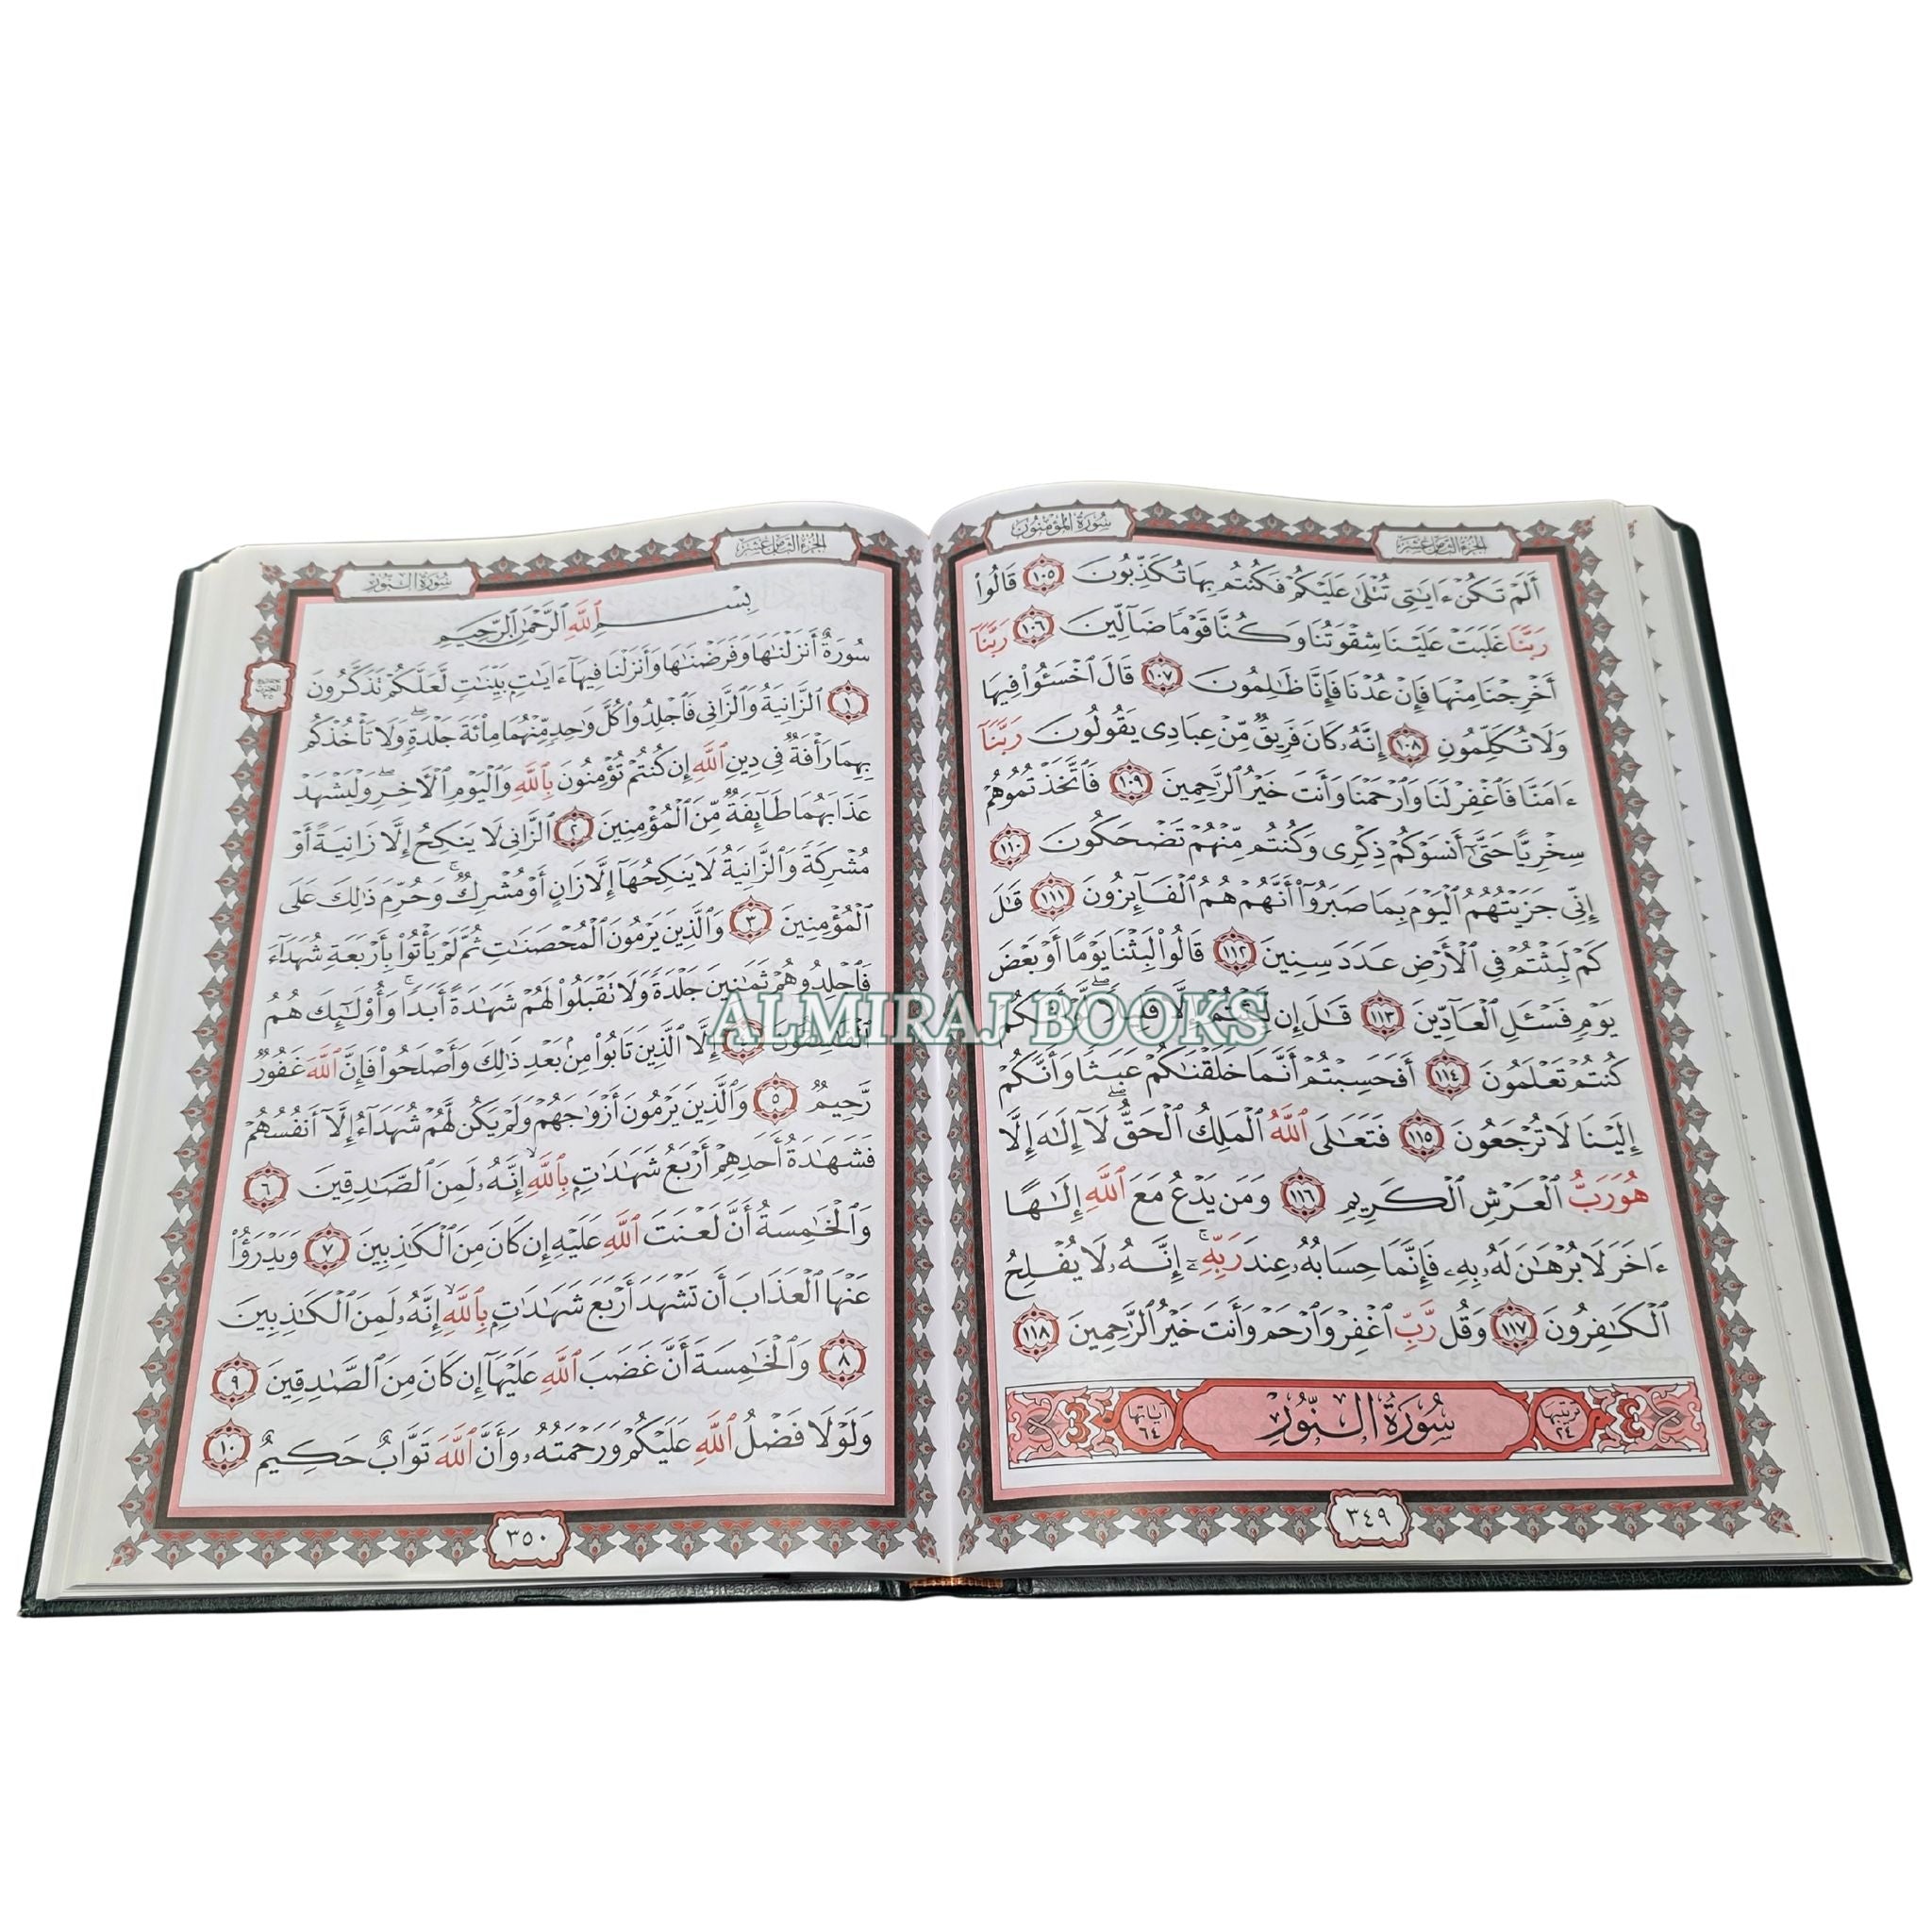 سُورَةُ المُؤْمِنُون
الجُزْءُ الثَّامِنَ عَشَرَ
أَلَمْ تَكُنْ ءَايَٰتِى تُتْلَىٰ عَلَيْكُمْ فَكُنتُم بِهَا تُكَذِّبُونَ ١٠٥ قَالُوا۟
رَبَّنَا غَلَبَتْ عَلَيْنَا شِقْوَتُنَا وَكُنَّا قَوْمًا ضَآلِّينَ ١٠٦ رَبَّنَآ
أَخْرِجْنَا مِنْهَا فَإِنْ عُدْنَا فَإِنَّا ظَٰلِمُونَ ١٠٧ قَالَ ٱخْسَـُٔوا۟ فِيهَا
وَلَا تُكَلِّمُونِ ١٠٨ إِنَّهُۥ كَانَ فَرِيقٌ مِّنْ عِبَادِى يَقُولُونَ رَبَّنَآ
ءَامَنَّا فَٱغْفِرْ لَنَا وَٱرْحَمْنَا وَأَنتَ خَيْرُ ٱلرَّٰحِمِينَ ١٠٩ فَٱتَّخَذْتُمُوهُمْ
سِخْرِيًّا حَتَّىٰٓ أَنسَوْكُمْ ذِكْرِى وَكُنتُم مِّنْهُمْ تَضْحَكُونَ ١١٠
إِنِّى جَزَيْتُهُمُ ٱلْيَوْمَ بِمَا صَبَرُوٓا۟ أَنَّهُمْ هُمُ ٱلْفَآئِزُونَ ١١١ قَٰلَ
كَمْ لَبِثْتُمْ فِى ٱلْأَرْضِ عَدَدَ سِنِينَ ١١٢ قَالُوا۟ لَبِثْنَا يَوْمًا أَوْ بَعْضَ
يَوْمٍ فَسْـَٔلِ ٱلْعَآدِّينَ ١١٣ قَٰلَ إِن لَّبِثْتُمْ إِلَّا قَلِيلًا ۖ لَّوْ أَنَّكُمْ
كُنتُمْ تَعْلَمُونَ ١١٤ أَفَحَسِبْتُمْ أَنَّمَا خَلَقْنَٰكُمْ عَبَثًا وَأَنَّكُمْ
إِلَيْنَا لَا تُرْجَعُونَ ١١٥ فَتَعَٰلَى ٱللَّهُ ٱلْمَلِكُ ٱلْحَقُّ ۖ لَآ إِلَٰهَ إِلَّا
هُوَ رَبُّ ٱلْعَرْشِ ٱلْكَرِيمِ ١١٦ وَمَن يَدْعُ مَعَ ٱللَّهِ إِلَٰهًا
ءَاخَرَ لَا بُرْهَٰنَ لَهُۥ بِهِۦ فَإِنَّمَا حِسَابُهُۥ عِندَ رَبِّهِۦٓ ۚ إِنَّهُۥ لَا يُفْلِحُ
ٱلْكَٰفِرُونَ ١١٧ وَقُل رَّبِّ ٱغْفِرْ وَٱرْحَمْ وَأَنتَ خَيْرُ ٱلرَّٰحِمِينَ ١١٨
ترتيبها ٢٤ سُورَةُ النُّورِ آياتها ٦٤
٣٤٩
الجُزْءُ الثَّامِنَ عَشَرَ
سُورَةُ النُّور
بِسْمِ ٱللَّهِ ٱلرَّحْمَٰنِ ٱلرَّحِيمِ
سُورَةٌ أَنزَلْنَٰهَا وَفَرَضْنَٰهَا وَأَنزَلْنَا فِيهَآ ءَايَٰتٍۭ بَيِّنَٰتٍ لَّعَلَّكُمْ تَذَكَّرُونَ
١ ٱلزَّانِيَةُ وَٱلزَّانِى فَٱجْلِدُوا۟ كُلَّ وَٰحِدٍ مِّنْهُمَا مِا۟ئَةَ جَلْدَةٍ ۖ وَلَا تَأْخُذْكُم
بِهِمَا رَأْفَةٌ فِى دِينِ ٱللَّهِ إِن كُنتُمْ تُؤْمِنُونَ بِٱللَّهِ وَٱلْيَوْمِ ٱلْءَاخِرِ ۖ وَلْيَشْهَدْ
عَذَابَهُمَا طَآئِفَةٌ مِّنَ ٱلْمُؤْمِنِينَ ٢ ٱلزَّانِى لَا يَنكِحُ إِلَّا زَانِيَةً أَوْ
مُشْرِكَةً وَٱلزَّانِيَةُ لَا يَنكِحُهَآ إِلَّا زَانٍ أَوْ مُشْرِكٌ ۚ وَحُرِّمَ ذَٰلِكَ عَلَى
ٱلْمُؤْمِنِينَ ٣ وَٱلَّذِينَ يَرْمُونَ ٱلْمُحْصَنَٰتِ ثُمَّ لَمْ يَأْتُوا۟ بِأَرْبَعَةِ شُهَدَآءَ
فَٱجْلِدُوهُمْ ثَمَٰنِينَ جَلْدَةً وَلَا تَقْبَلُوا۟ لَهُمْ شَهَٰدَةً أَبَدًا ۚ وَأُو۟لَٰٓئِكَ هُمُ
ٱلْفَٰسِقُونَ ٤ إِلَّا ٱلَّذِينَ تَابُوا۟ مِنۢ بَعْدِ ذَٰلِكَ وَأَصْلَحُوا۟ فَإِنَّ ٱللَّهَ غَفُورٌ
رَّحِيمٌ ٥ وَٱلَّذِينَ يَرْمُونَ أَزْوَٰجَهُمْ وَلَمْ يَكُن لَّهُمْ شُهَدَآءُ إِلَّآ أَنفُسُهُمْ
فَشَهَٰدَةُ أَحَدِهِمْ أَرْبَعُ شَهَٰدَٰتٍۭ بِٱللَّهِ ۙ إِنَّهُۥ لَمِنَ ٱلصَّٰدِقِينَ ٦
وَٱلْخَٰمِسَةُ أَنَّ لَعْنَتَ ٱللَّهِ عَلَيْهِ إِن كَانَ مِنَ ٱلْكَٰذِبِينَ ٧ وَيَدْرَؤُا۟
عَنْهَا ٱلْعَذَابَ أَن تَشْهَدَ أَرْبَعَ شَهَٰدَٰتٍۭ بِٱللَّهِ ۙ إِنَّهُۥ لَمِنَ ٱلْكَٰذِبِينَ
٨ وَٱلْخَٰمِسَةَ أَنَّ غَضَبَ ٱللَّهِ عَلَيْهَآ إِن كَانَ مِنَ ٱلصَّٰدِقِينَ ٩
وَلَوْلَا فَضْلُ ٱللَّهِ عَلَيْكُمْ وَرَحْمَتُهُۥ وَأَنَّ ٱللَّهَ تَوَّابٌ حَكِيمٌ ١٠
٣٥٠
ALMIRAJ BOOKS